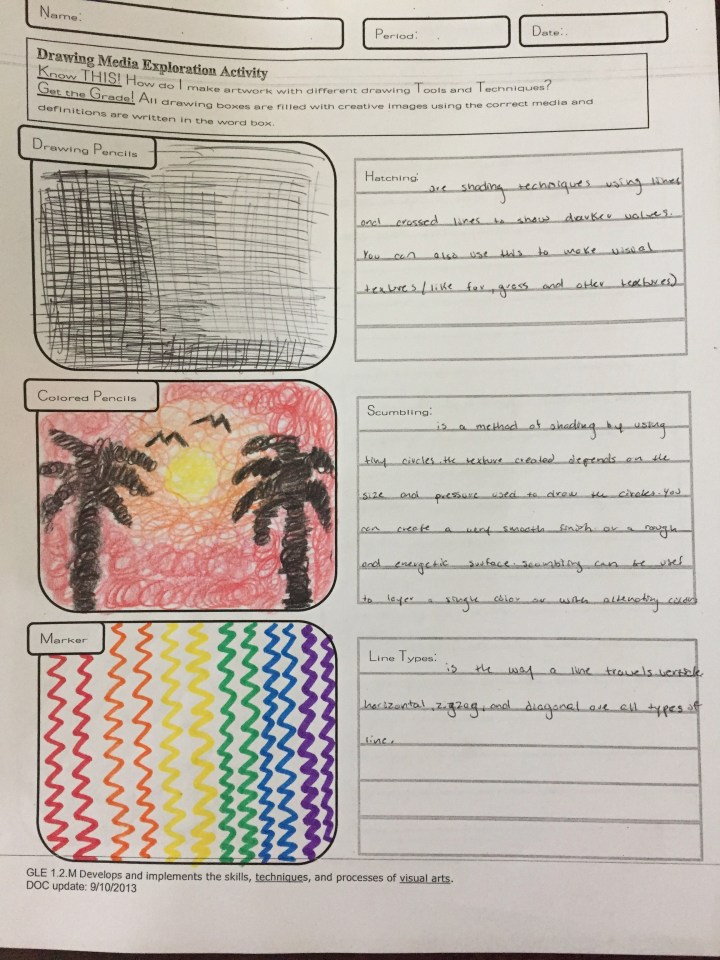 Name:
Period:
Date:
Drawing Media Exploration Activity
Know THIS! How do I make artwork with different drawing Tools and Techniques?
Get the Grade! All drawing boxes are filled with creative images using the correct media and
definitions are written in the word box.
Drawing Pencils
Hatching:
are shading techniques using lines
and crossed lines to show darker values.
You can also use this to make visual
textures (like fur, grass and other textures)
Colored Pencils
Scumbling:
is a method of shading by using
tiny circles. the texture created depends on the
size and pressure used to draw the circles. You
can create a very smooth finish or a rough
and energetic surface. scumbling can be used
to layer a single color or with alternating colors
Marker
Line Types:
is the way a line travels.
horizontal, zigzag, and diagonal are all types of
line.
GLE 1.2.M Develops and implements the skills, techniques, and processes of visual arts.
DOC update: 9/10/2013